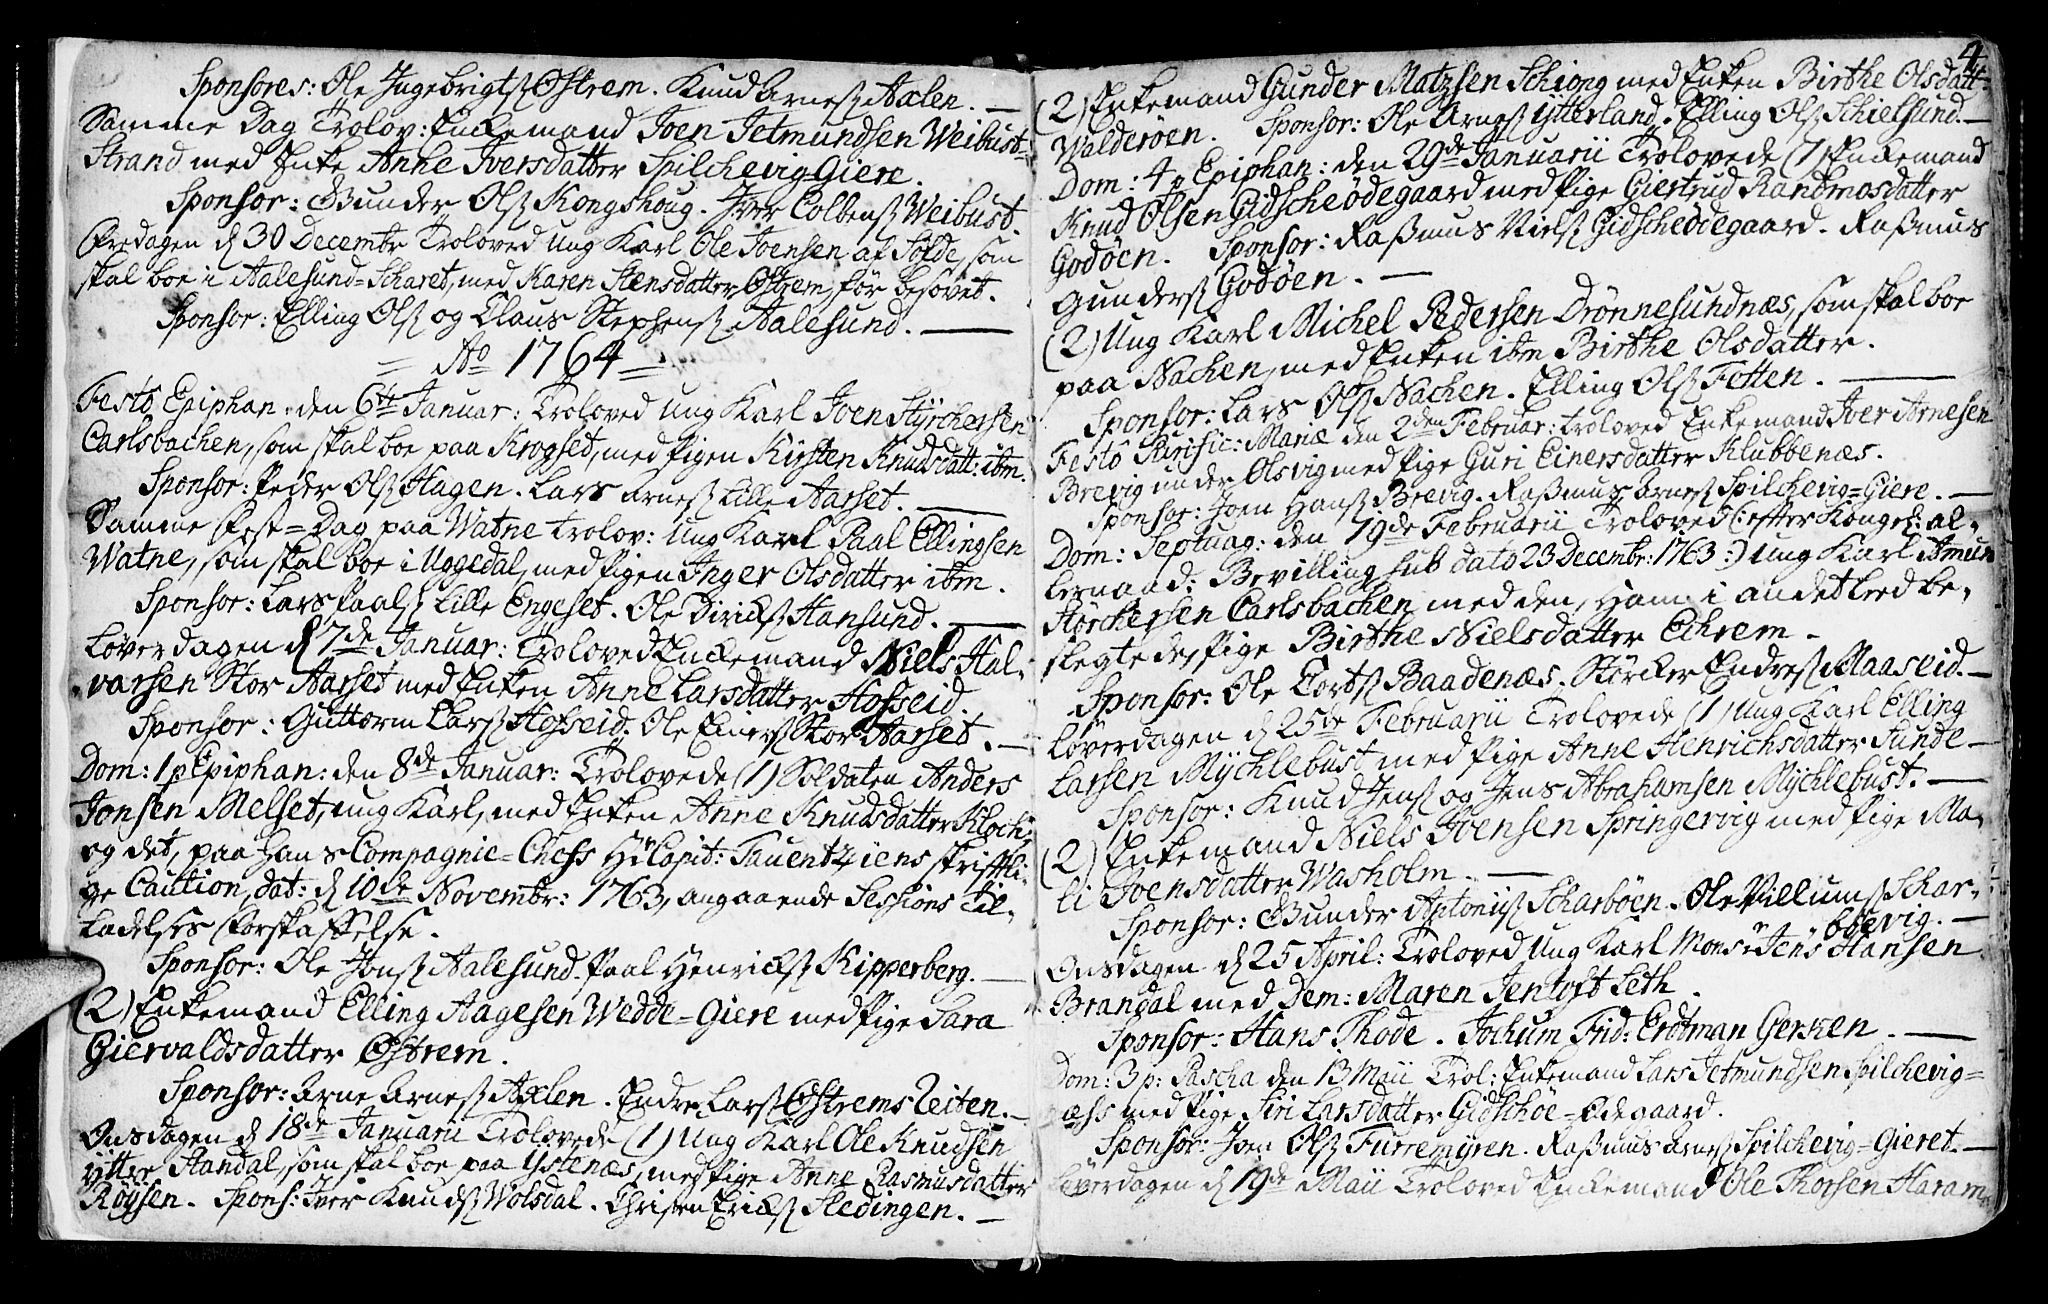 Sponsores: Ole Ingebrigts. Østrem. Knud Arnes. Axlen. —
Samme Dag Trolov: Enkemand Joen Jetmundsen Weibust-
Strand med Enke Anne Iversdatter Spilchevig Giere.
Sponsor: Gunder Ols. Kongshoug. Iver Colbens. Weibust.
Fredagen d 30 Decembr Troloved ung Karl Ole Joensen af Folde, som
skal boe i Aalesund-Skaret, med Karen Stensdatter Østrem, før besovet.
Sponsor: Elling Ols. og Claus Stephens. Aalesund. —
= Ao 1764 =
Festo Epiphan. den 6te Januar: Troloved ung Karl Joen Styrchersen
Carlsbachen, som skal boe paa Krogset, med Pigen Kirsten Knudsdatt: ibm.
Sponsor: Peder Ols. Hagen. Lars Arnes. Lille Aarset. —
Samme Fest=Dag paa Watne trolov: ung Karl Paal Ellingsen
Watne, som skal boe i Uggedal, med Pigen Inger Olsdatter ibm.
Sponsor: Lars Paals. Lille Engeset. Ole Diricks. Hansund. —
Løverdagen d 7de Januar: Troloved Enkemand Niels Hal-
varsen Stor Aarset med Enken Anne Larsdatter Hofseid.
Sponsor: Guttorm Lars. Hofseid. Ole Einers. Stor Aarset. —
Dom: 1 p Epiphan: den 8de Januar: Trolovede (1) Soldaten Anders
Jonsen Melset, ung Karl, med Enken Anne Knudsdatter Kloch,
og det, paa hans Compagnie=Chefs Hr Capit: Tauentziens skriftli-
ge Caution, dat: d 10de Novembr: 1763, angaaende Sessions Til-
ladelses Forskaffelse.
Sponsor: Ole Jons. Aalesund. Paal Henricks. Kipperberg. —
(2) Enkemand Elling Aagesen Wedde=Giere med Pige Sara
Giervaldsdatter Østrem.
Sponsor: Arne Arnes. Axlen. Endre Lars. Østrems Leiten. —
Onsdagen d 18de Januarii Trolovede (1) Ung Karl Ole Knudsen
Ytter Standal, som skal boe paa Ystenæs, med Pige Anne Rasmusdatter
Röysen. Spons: Iver Knuds. Wolsdal. Christen Ericks. Sledingen. —
4
(2) Enkemand Gunder Matzsen Schiong med Enken Birthe Olsdatt-
Walderöen. Sponsor: Ole Arnes. Ytterland. Elling Ols. Schielsund. —
Dom: 4 p Epiphan: den 29de Januarii Trolovede (1) Enkemand
Knud Olsen Gidscheödegaard med Pige Giertrud Randmosdatter
Godöen. Sponsor: Rasmus Niels. Gidscheödegaard. Rasmus
Gunders. Godöen. —
(2) Ung Karl Michel Pedersen Drönnesundnæs, som skal boe
paa Nachen, med Enken ibm Birthe Olsdatter.
Sponsor: Lars Ols. Nachen. Elling Ols. Fetten. —
Festo Purific: Mariæ den 2den Februar: troloved Enkemand Iver Arnesen
Brevig under Olsvig med Pige Guri Einersdatter Klubbenæs.
Sponsor: Joen Hans. Brevig. Rasmus Arnes. Spilchevig=Giere. —
Dom: Septuag: den 19de Februarii Troloved (: efter Kongel: al-
lernaad: Bevilling sub dato 23 Decembr: 1763 :) ung Karl Amun
Störchersen Carlsbachen med den, ham i andet Leed be-
slegtede, Pige Birthe Nielsdatter Echrem.
Sponsor: Ole Torbs. Baadenæs. Störcker Endres. Maaseid. —
Løverdagen d 25de Februarii Trolovede (1) Ung Karl Elling
Larsen Mychlebust med Pige Anne Henrichsdatter Sunde —
Sponsor: Knud Jens. og Jens Abrahamsen Mychlebust. —
(2) Enkemand Niels Joensen Springervig med Pige Ma-
li Joensdatter Washolm. —
Sponsor: Gunder Antonis. Scharböen. Ole Villums. Schar-
böevig. —
Onsdagen d 25 April: Troloved Ung Karl Monsr Jens Hansen
Brandal med Dem: Maren Jentoft Leth.
Sponsor: Hans Thode. Jochum Frid: Erdtman Gerken. —
Dom: 3 p: Pascha den 13 Maii Trol: Enkemand Lars Jetmundsen Spilchevig=
næss med Pige Siri Larsdatter Gidschöe=Ödegaard.
Sponsor: Jon Ols. Furremyren. Rasmus Arnes. Spilchevig=Gieret. —
Løverdagen d 19de Maii Troloved Enkemand Ole Thorsen Haram